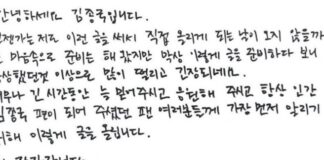 안녕하세요 김종국입니다.
언젠가는 저도 이런 글을 써서 직접 올리게 되는 날이 오지 않을까
마음속으로 준비는 해 왔지만 막상 이렇게 글을 준비하다 보니
상했던것 이상으로 많이 떨리고 긴장되네요.
너무나 긴 시간동안 늘 믿어주시고 응원해 주시고 항상 인간
김종국 편이 되어 주셨던 팬 여러분들께 가장 먼저 알리기
위해 이렇게 글을 올립니다.